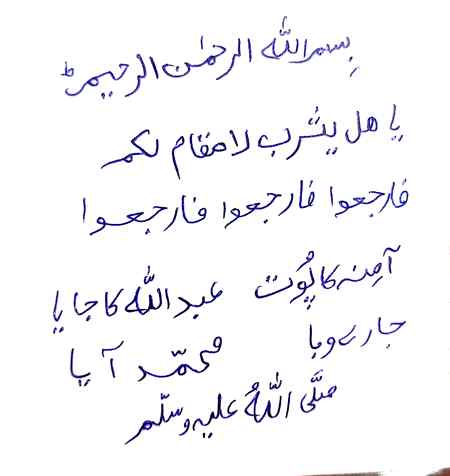 بسم اللہ الرحمٰن الرحیم
یا ھل یثرب لا مقام لکم
فارجعوا فارجعوا فارجعوا
آمِنہ کا پُوت عبداللہ کا جایا
جارے وبا محمّد آیا
صلَّی اللہُ علیہ وسلّم